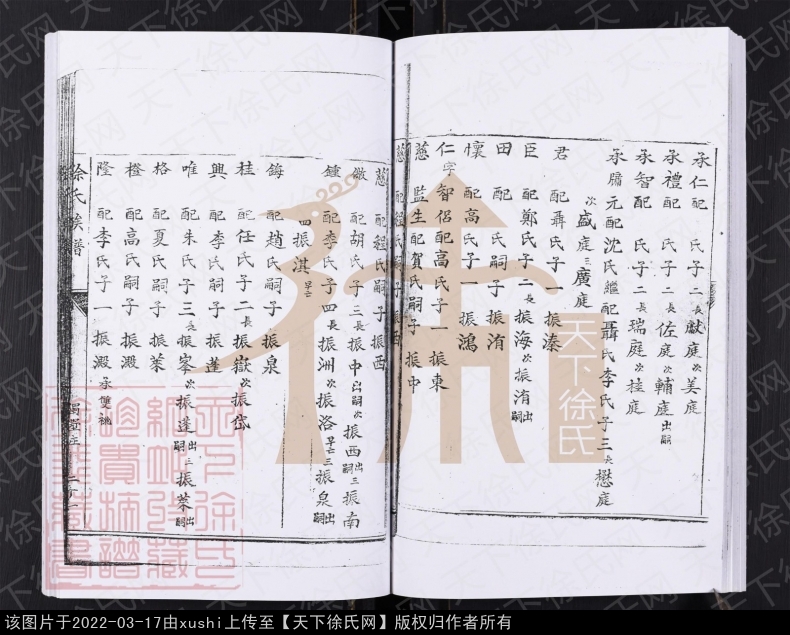 承仁配 氏子二長獻庭次美庭
承禮配 氏子二長佐庭次輔庭出嗣
承智配 氏子二長瑞庭次桂庭
承牖元配沈氏繼配聶氏李氏子三長懋庭
次盛庭三廣庭
君 配聶氏子一 振溱
臣 配鄭氏子二長振海次振洧出嗣
田 配 氏嗣子 振洧
懷 配高氏子一 振鴻
仁字智侶配高氏子一 振東
慈 監生配賀氏嗣子 振中
慈 配程氏嗣子 振西
徵 配胡氏子三長振中出嗣次振西出嗣三振南
鍾 配李氏子四長振洲次振洛早亡三振泉出嗣
四振淇早亡
鑄 配趙氏嗣子 振泉
桂 配任氏子二長振嶽次振岱
興 配李氏嗣子 振蓬
唯 配朱氏子三長振峯次振蓬出嗣三振萊出嗣
格 配夏氏嗣子 振萊
橙 配高氏嗣子 振澱
隆 配李氏子一 振澱承雙祧
徐氏族譜
二十一
天下徐氏
天下徐氏网
该图片于2022-03-17由xushi上传至【天下徐氏网】版权归作者所有